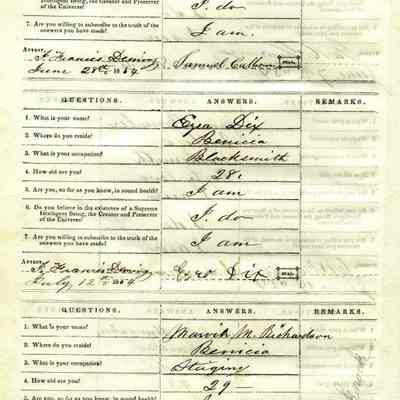 Intelligent Being, the Creator and Preserver
of the Universe? I. do
7. Are you willing to subscribe to the truth of the
answers you have made? I am.
ATTEST, Samuel Calhoun SEAL.
J. Francis Deming
June 28th 1864
QUESTIONS. ANSWERS. REMARKS.
1. What is your name? Ezra Dix
2. Where do you reside? Benicia
3. What is your occupation? Blacksmith
4. How old are you? 28.
5. Are you, so far as you know, in sound health? I am
6. Do you believe in the existence of a Supreme
Intelligent Being, the Creator and Preserver
of the Universe? I. do
7. Are you willing to subscribe to the truth of the
answers you have made? I am
ATTEST, Ezra Dix SEAL.
J. Francis Deming
July 12th 1864
QUESTIONS. ANSWERS. REMARKS.
1. What is your name? M. Richardson
2. Where do you reside? Benicia
3. What is your occupation? Staging
4. How old are you? 29
5. Are you, so far as you know, in sound health?